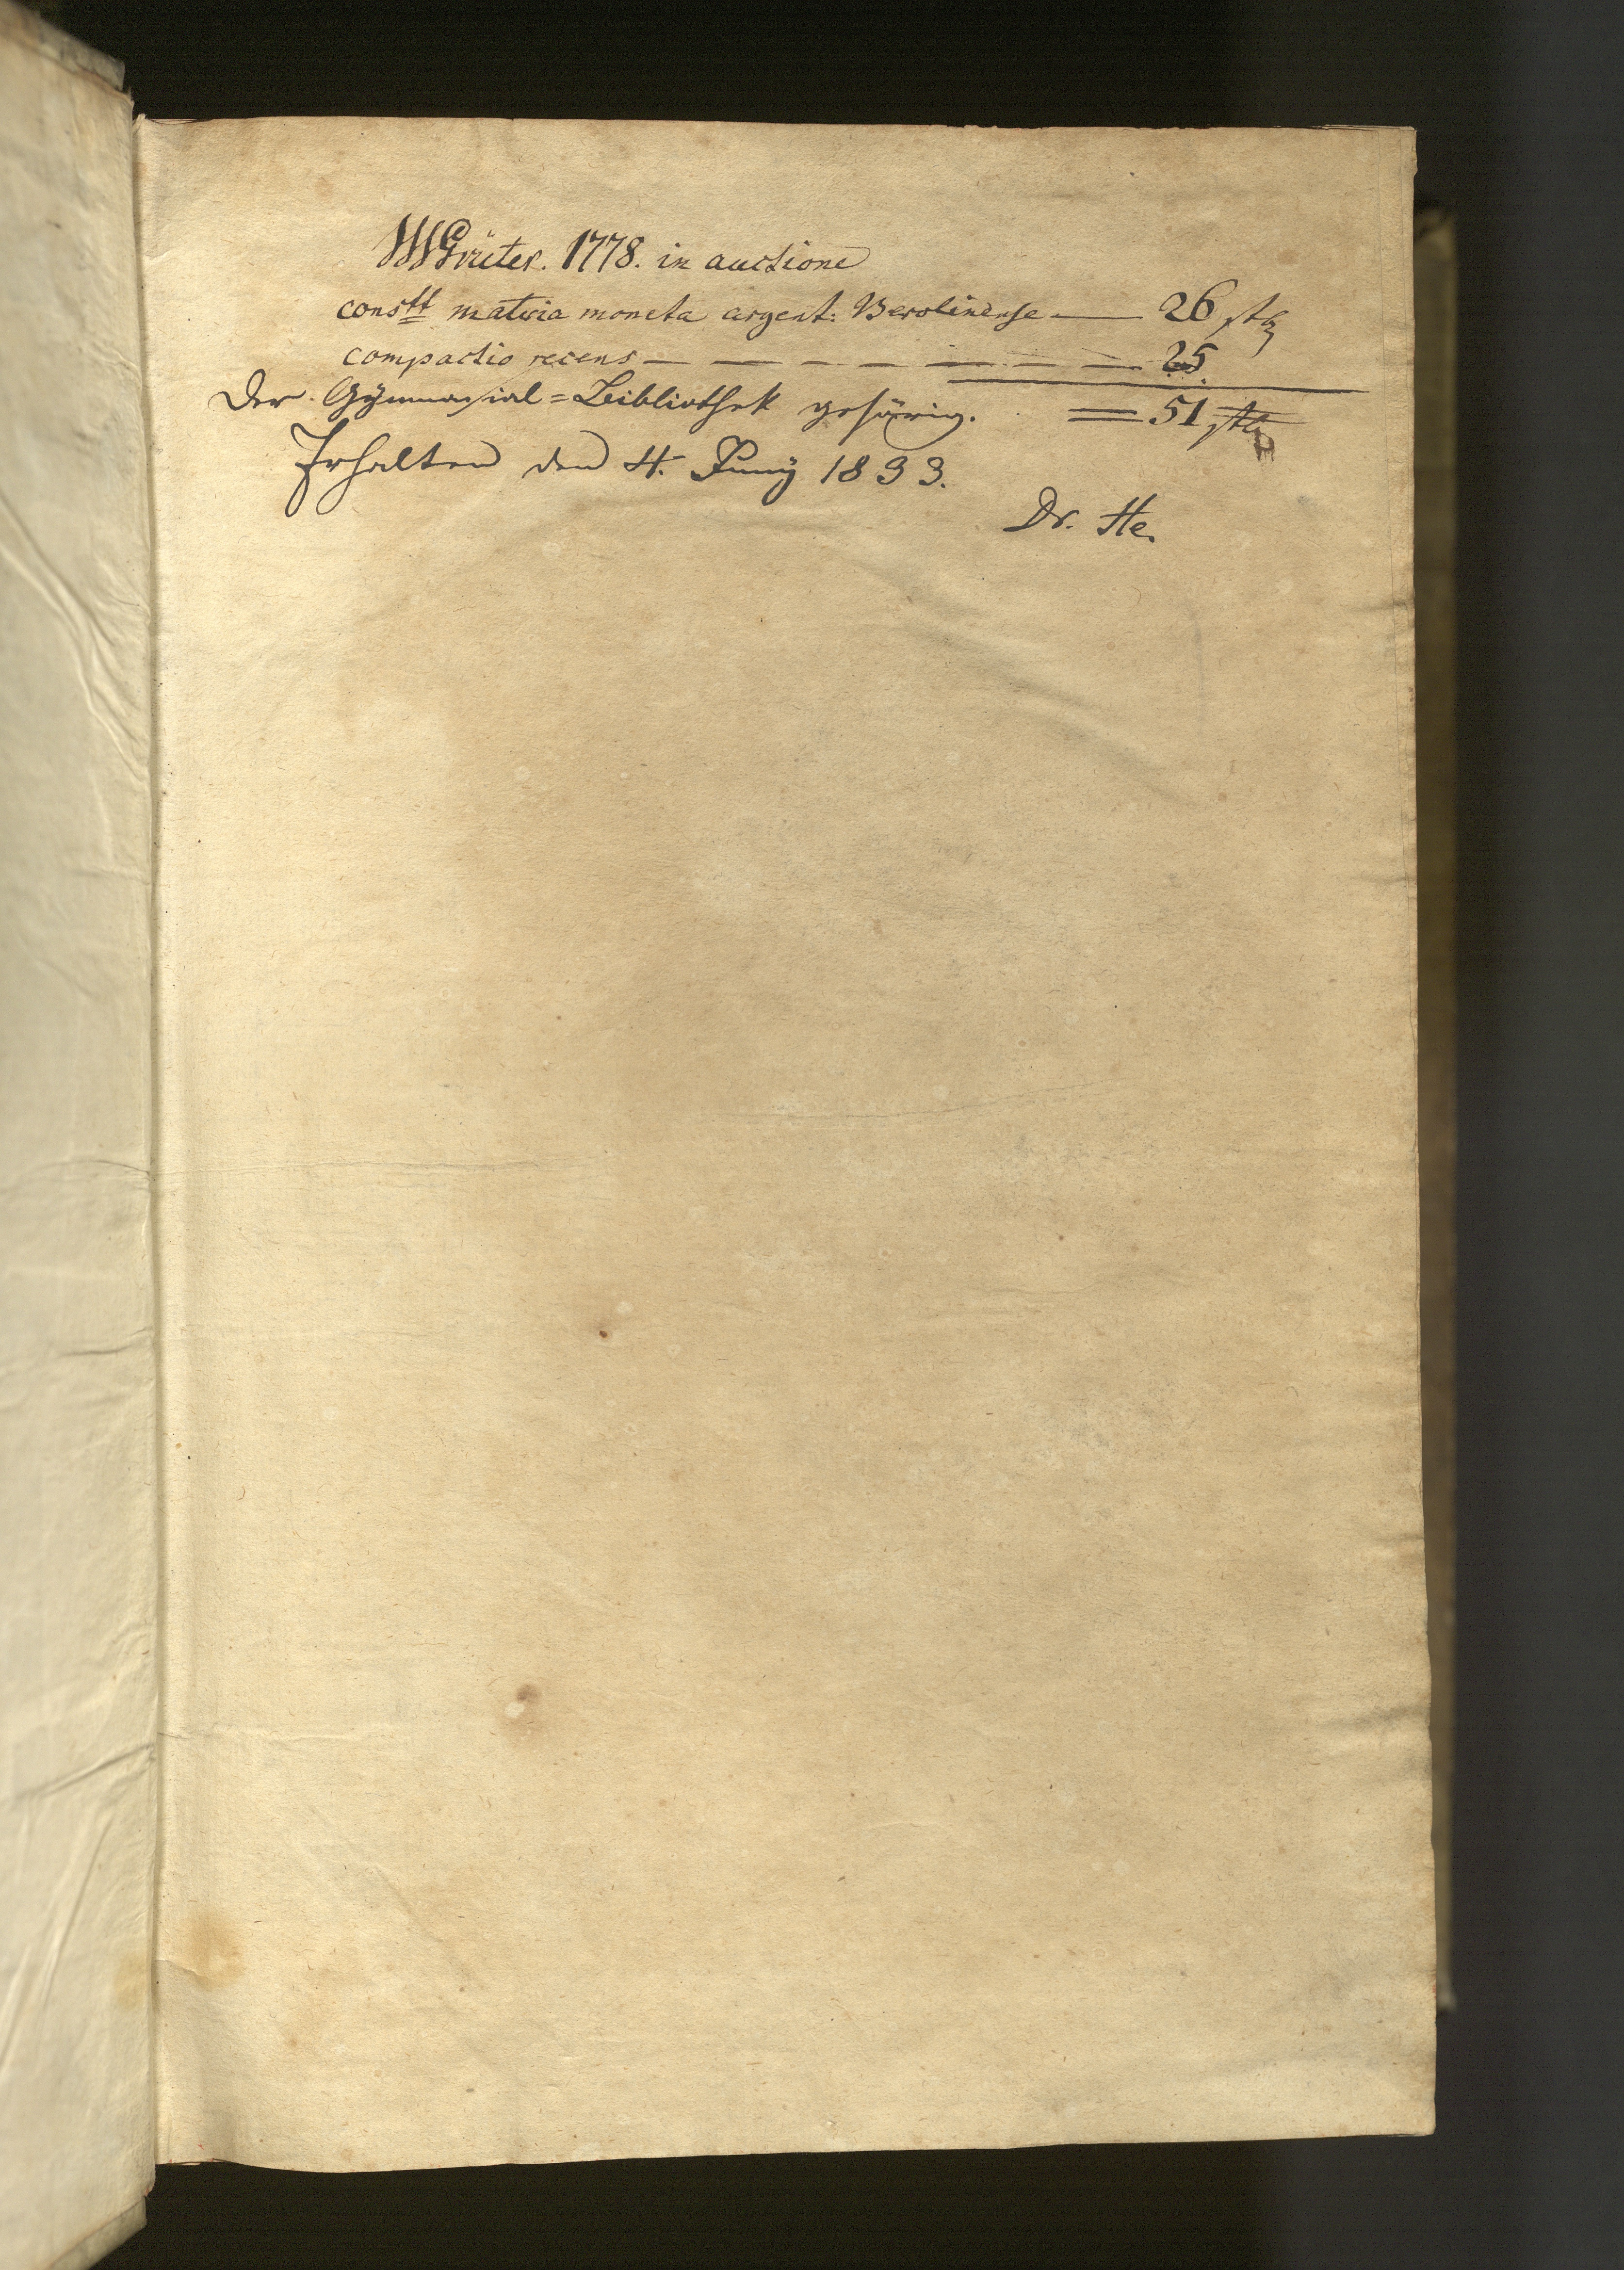 Grüter. 1778. in auctione
constt materia moneta argent: Berolinense — 26 stq
compactio recens — — — — — — — — 25
= 51 stq
Der Gÿmnasial=Bibliothek gehörig.
Erhalten den 4. Junÿ 1833.
Dr. He.